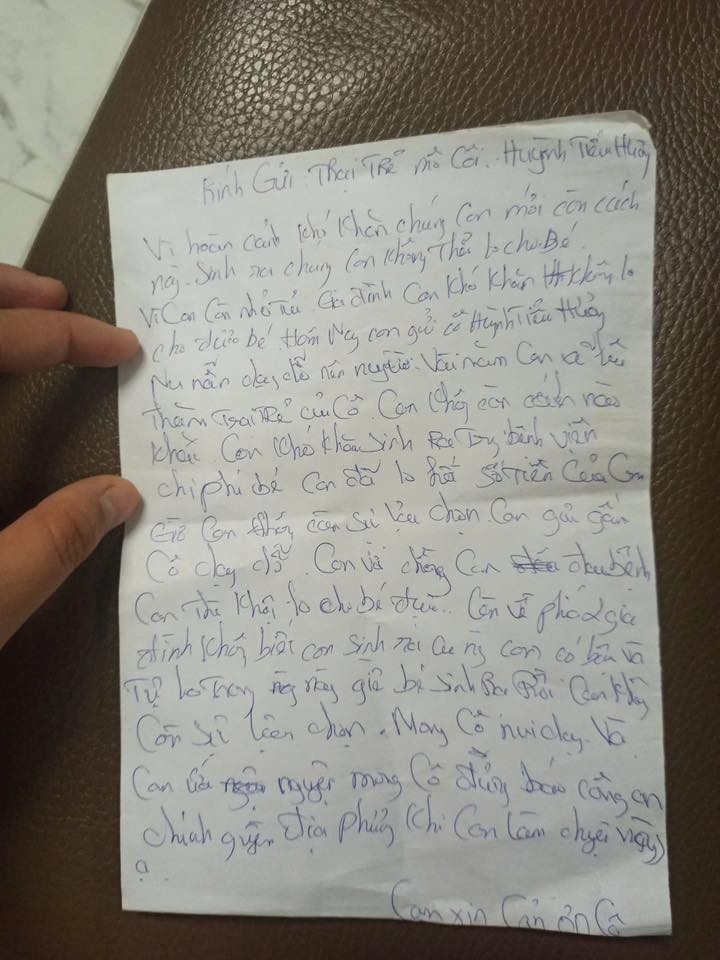 Kính Gửi Trại Trẻ mồ Côi. Huỳnh Tiểu Hường
Vì hoàn cảnh khó khăn chúng Con mới còn cách
này. Sinh ra chúng Con không Thể lo cho Bé.
Vì Con Còn nhỏ Gia đình Con khó khăn không lo
cho được bé Hôm Nay con gửi cô Huỳnh Tiểu Hường
dạy dỗ nên người. Vài năm Con sẽ
Thăm Trại Trẻ của Cô. Con không còn cách nào
khác. Con khó khăn sinh bệnh viện
chi phí bé Con đã lo hết số Tiền Của Con
Giờ Con không còn sự lựa chọn. Con gửi gấm
Cô dạy dỗ. Con và chồng Con đau bệnh
Con Thì không lo cho bé được. Còn về phía 2 gia
đình không biết con sinh ra con có bầu và
Tự lo giờ bé sinh Ra Rồi Con không
Còn sự chọn. Mong Cô nuôi dạy. Và
Con nguyện mong Cô đừng báo công an
chính quyền địa phương khi Con làm chuyện này
ạ
Con xin Cảm ơn Cô